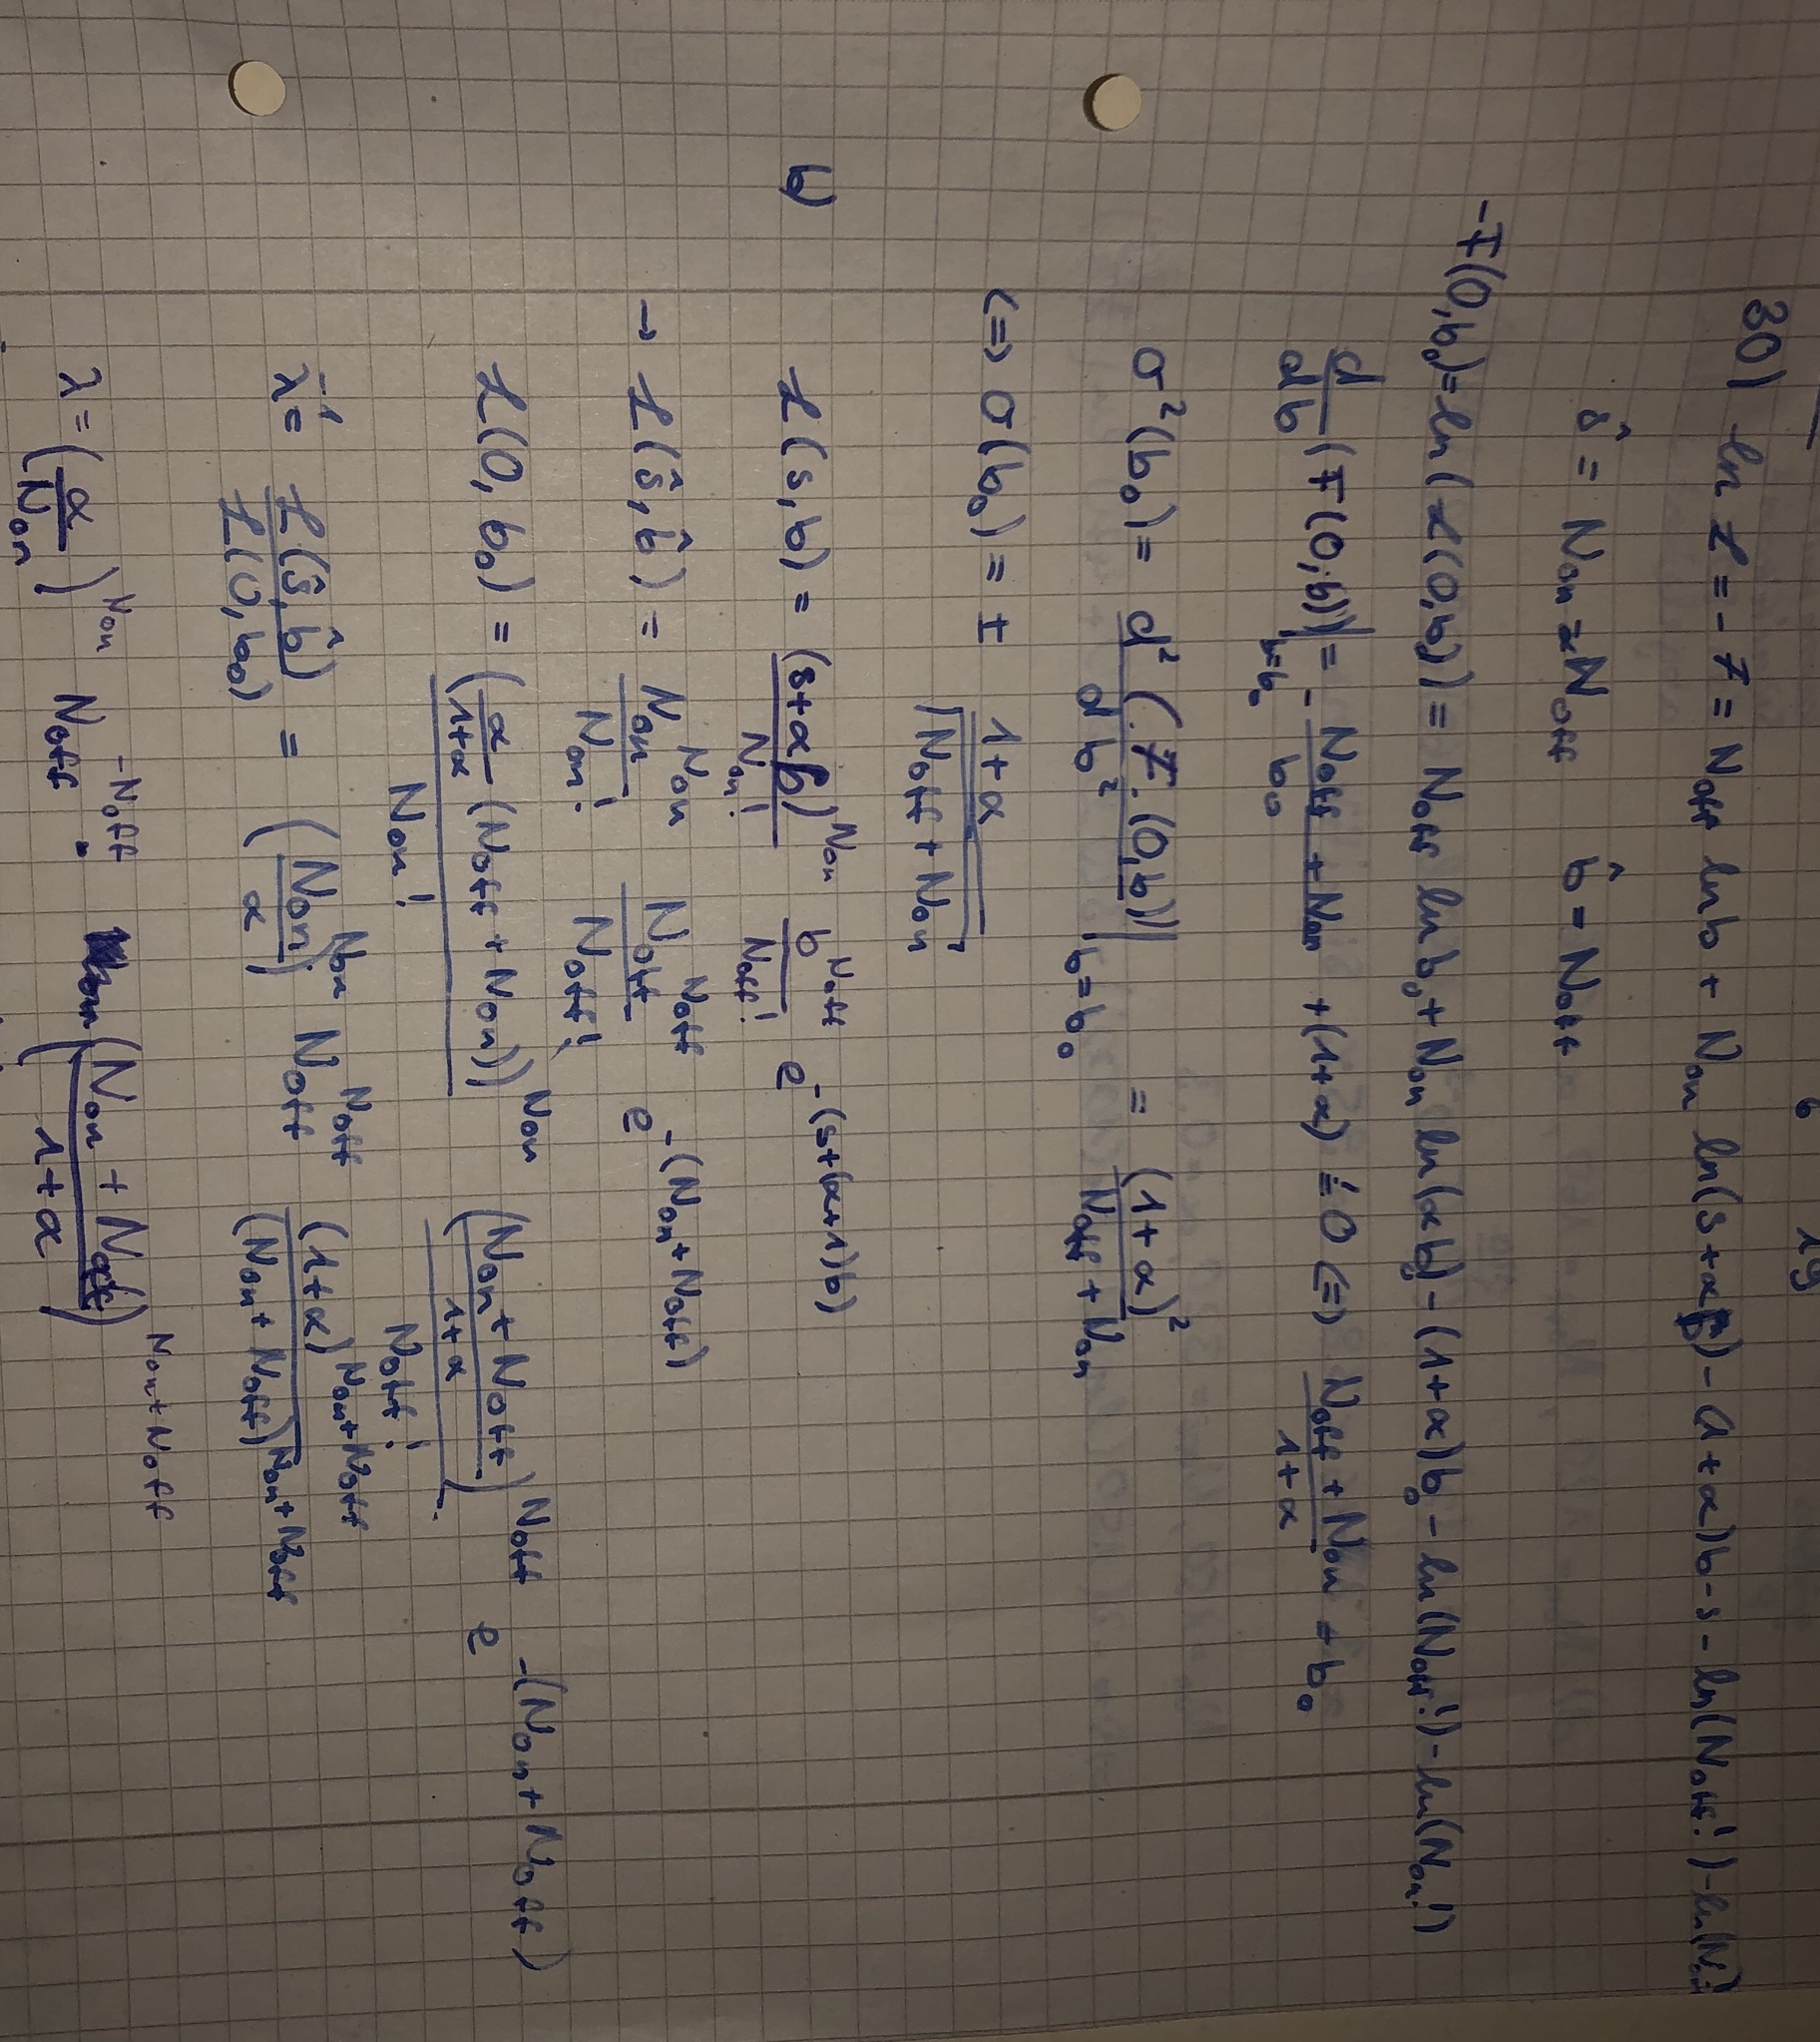 30) ln ℒ = -F = N_off ln b + N_on ln(s+αb) - (1+α)b - s - ln(N_off!) - ln(N
ŝ = N_on - αN_off b̂ = N_off
-F(0,b₀) = ln(ℒ(0,b₀)) = N_off ln b₀ + N_on ln(αb₀) - (1+α)b₀ - ln(N_off!) - ln(N_on!)
d/db (F(0,b))|_{b=b₀} = - (N_off + N_on)/b₀ + (1+α) != 0 <=> (N_off + N_on)/(1+α) = b₀
σ²(b₀) = d²(F(0,b))/db² |_{b=b₀} = (1+α)²/(N_off + N_on)
<=> σ(b₀) = ± (1+α)/√(N_off + N_on)
b) ℒ(s,b) = (s+αb)^{N_on}/N_on! b^{N_off}/N_off! e^{-(s+(α+1)b)}
→ ℒ(ŝ,b̂) = N_on^{N_on}/N_on! N_off^{N_off}/N_off! e^{-(N_on+N_off)}
ℒ(0,b₀) = (α/(1+α) (N_off + N_on))^{N_on}/N_on! ((N_on + N_off)/(1+α))^{N_off}/N_off! e^{-(N_on+N_off)}
λ^{-1} = ℒ(ŝ,b̂)/ℒ(0,b₀) = (N_on/α)^{N_on} N_off^{N_off} (1+α)^{N_on+N_off}/(N_on+N_off)^{N_on+N_off}
λ = (α/N_on)^{N_on} N_off^{-N_off} · ((N_on + N_off)/(1+α))^{N_on+N_off}